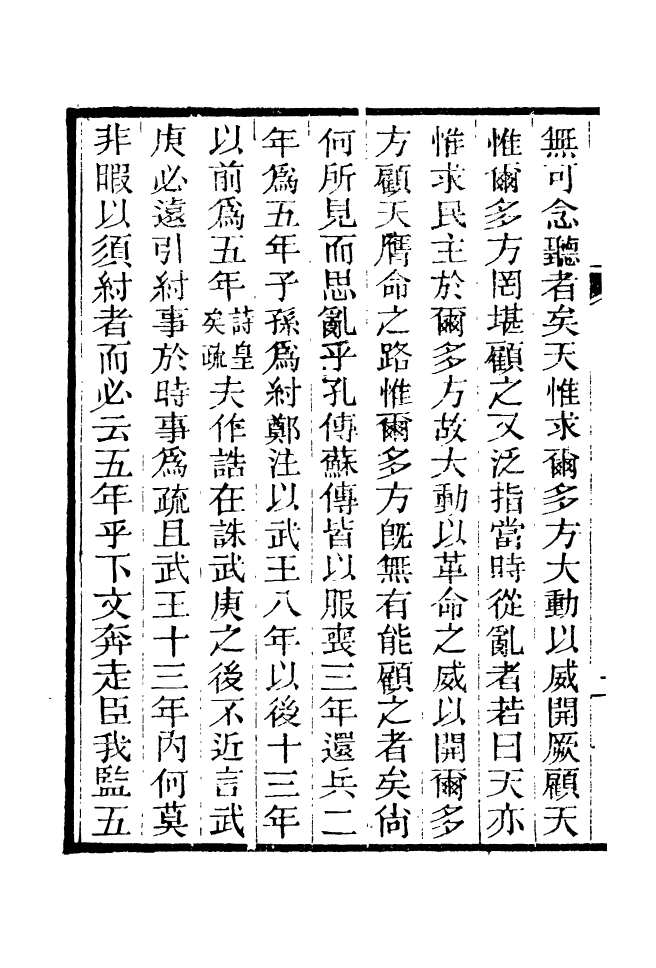 無可念聽者矣天惟求爾多方大動以威開厥顧天
惟爾多方罔堪顧之又泛指當時從亂者若曰天亦
惟求民主於爾多方故大動以革命之威以開爾多
方顧天膺命之路惟爾多方旣無有能顧之者矣尙
何所見而思亂乎孔傳蘇傳皆以服喪三年還兵二
年爲五年子孫爲紂鄭注以武王八年以後十三年
以前爲五年詩皇矣疏夫作誥在誅武庚之後不近言武
庚必遠引紂事於時事爲疏且武王十三年內何莫
非暇以須紂者而必云五年乎下文奔走臣我監五